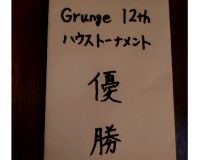 Grunge 12th
ハウストーナメント
優
勝